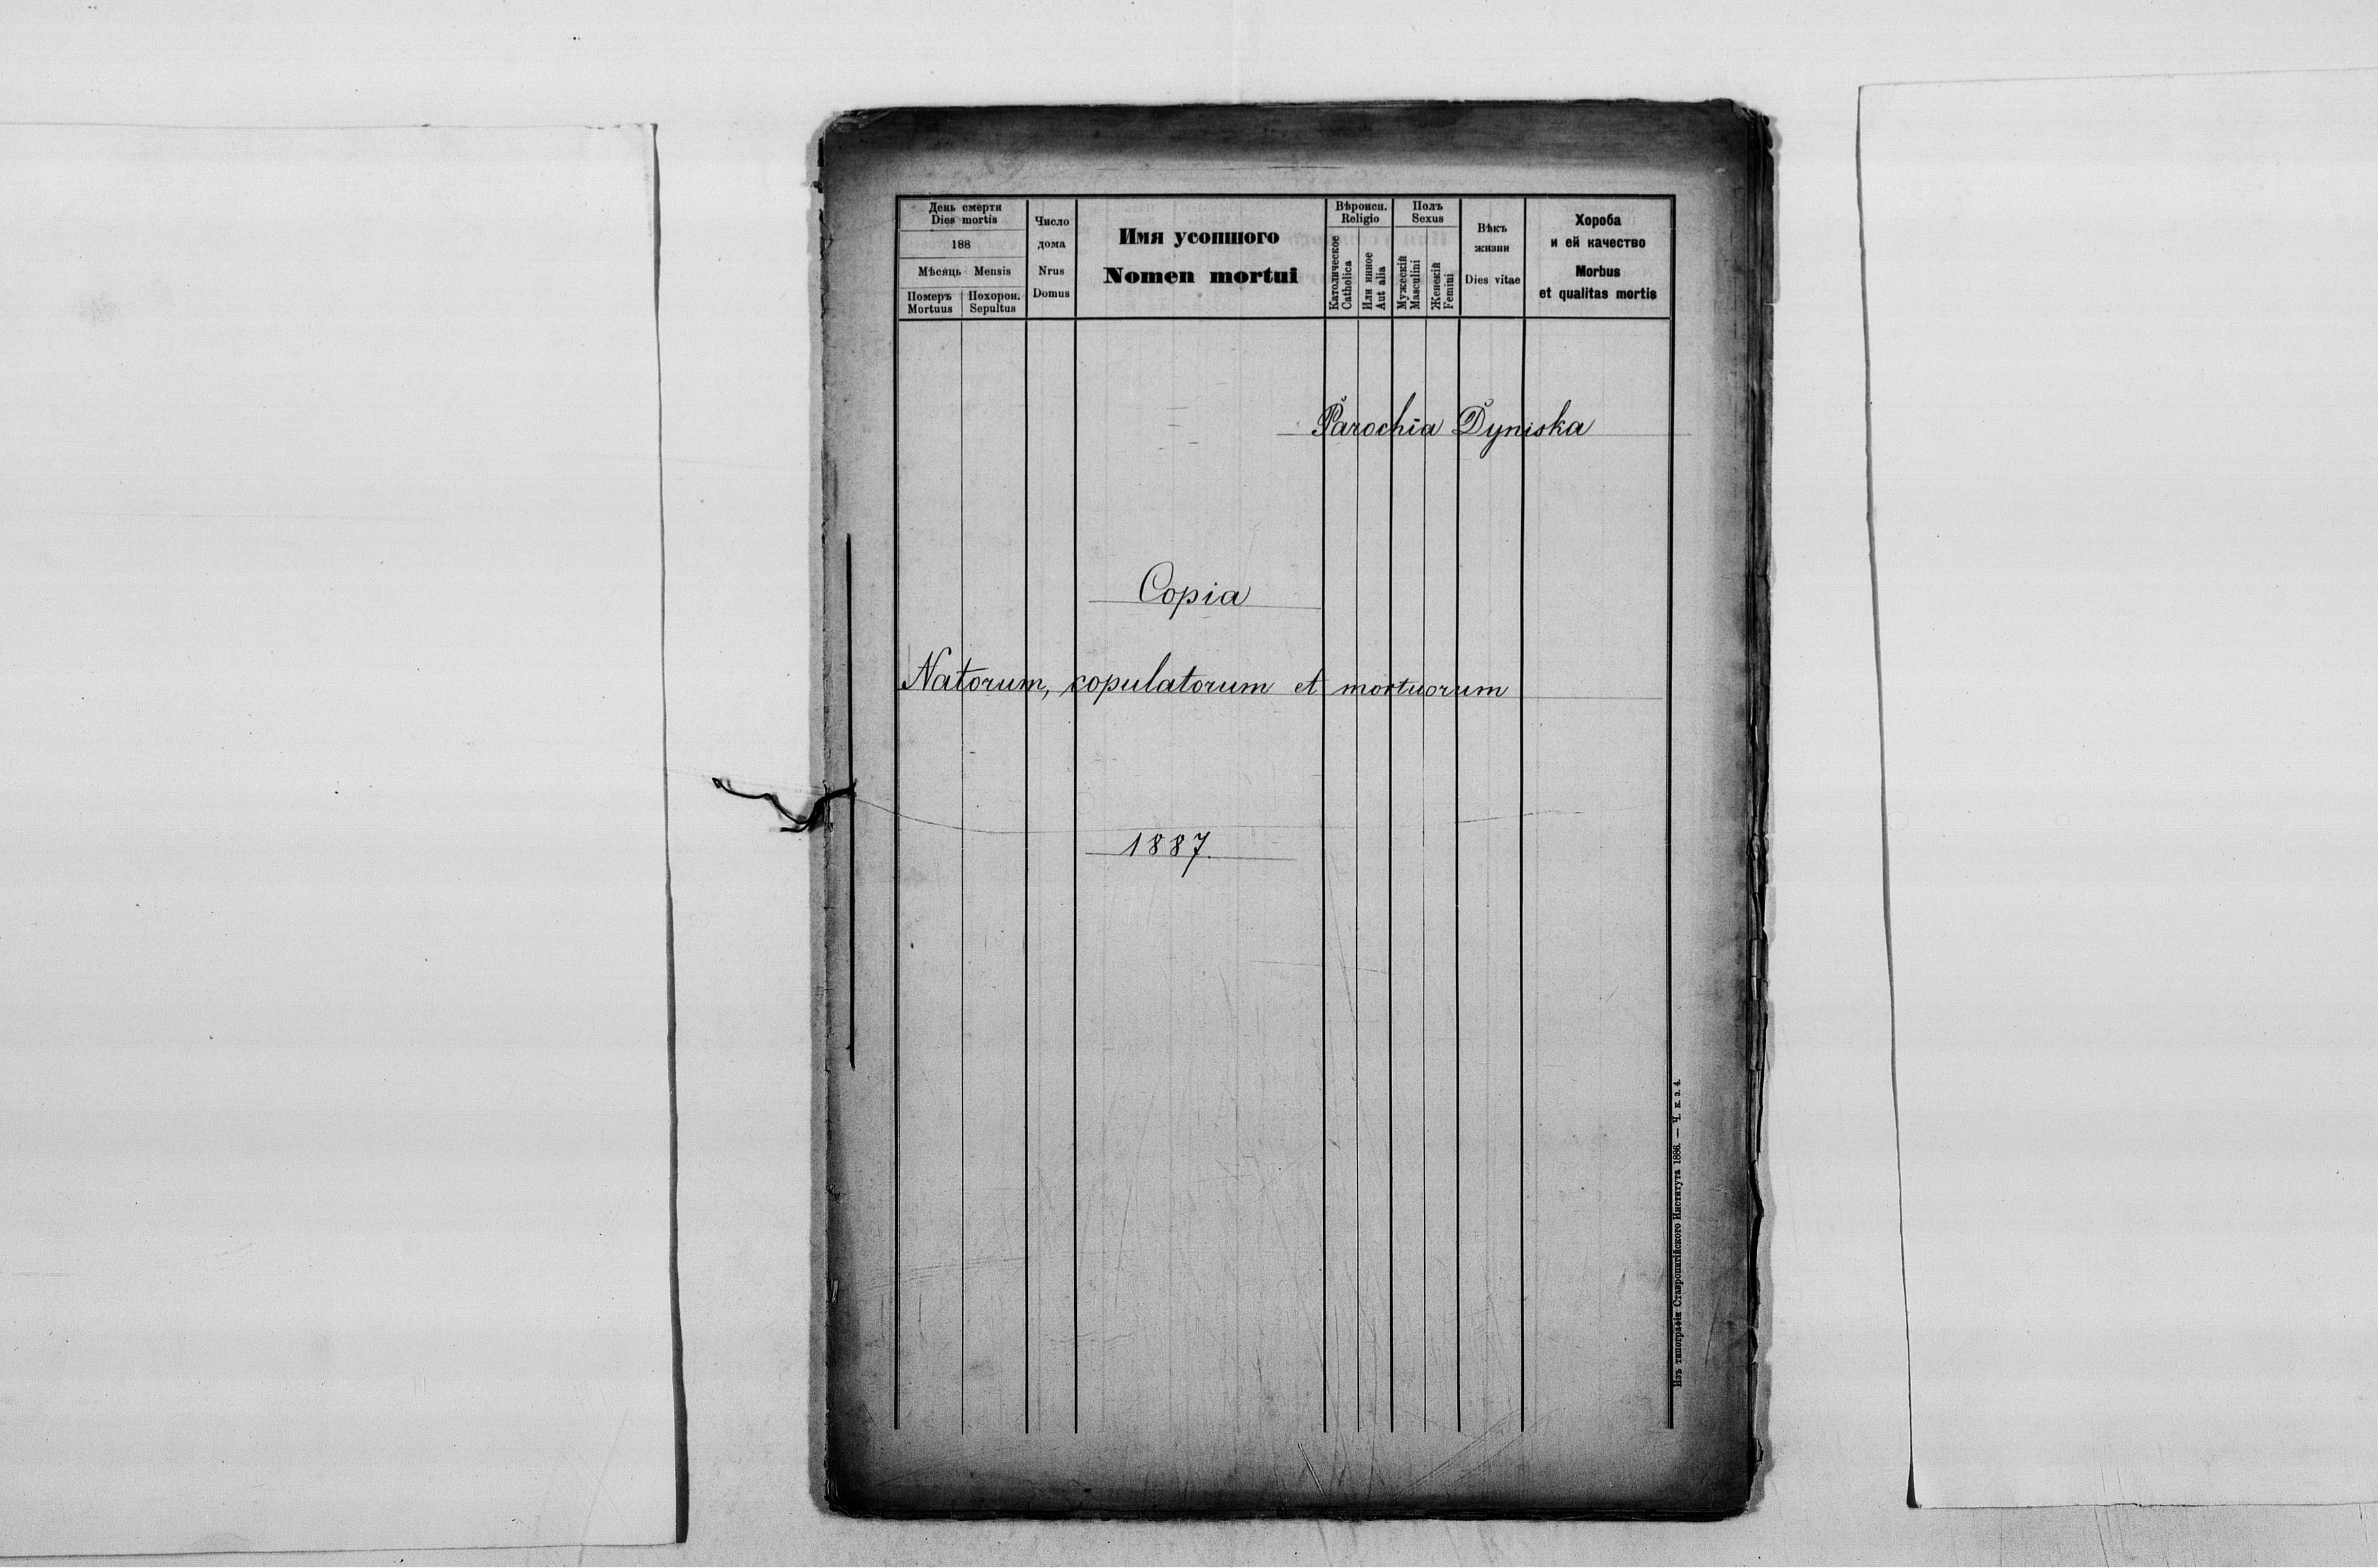 День смерти
Dies mortis
188
Мѣсяць Mensis
Померъ
Mortuus
Похорон.
Sepultus
Число
дома
Nrus
Domus
Имя усопшого
Nomen mortui
Вѣроисп.
Religio
Католическое
Catholica
Или инное
Aut alia
Полъ
Sexus
Мужескій
Masculini
Женскій
Femini
Вѣкъ
жизни
Dies vitae
Хороба
и ей качество
Morbus
et qualitas mortis
Parochia Dyniska
Copia
Natorum, copulatorum et mortuorum
1887.
Изъ типографіи Ставропигійского Института 1886. — Ч. к. з. 4.